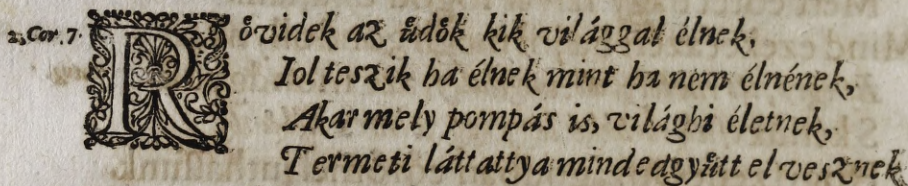 2, Cor. 7. Rövidek az üdök kik világgal élnek,
Iol teszik ha élnek mint ha nem élnének,
Akar mely pompás is, világhi életnek,
Termeti láttattya minde edgyütt el vesznek